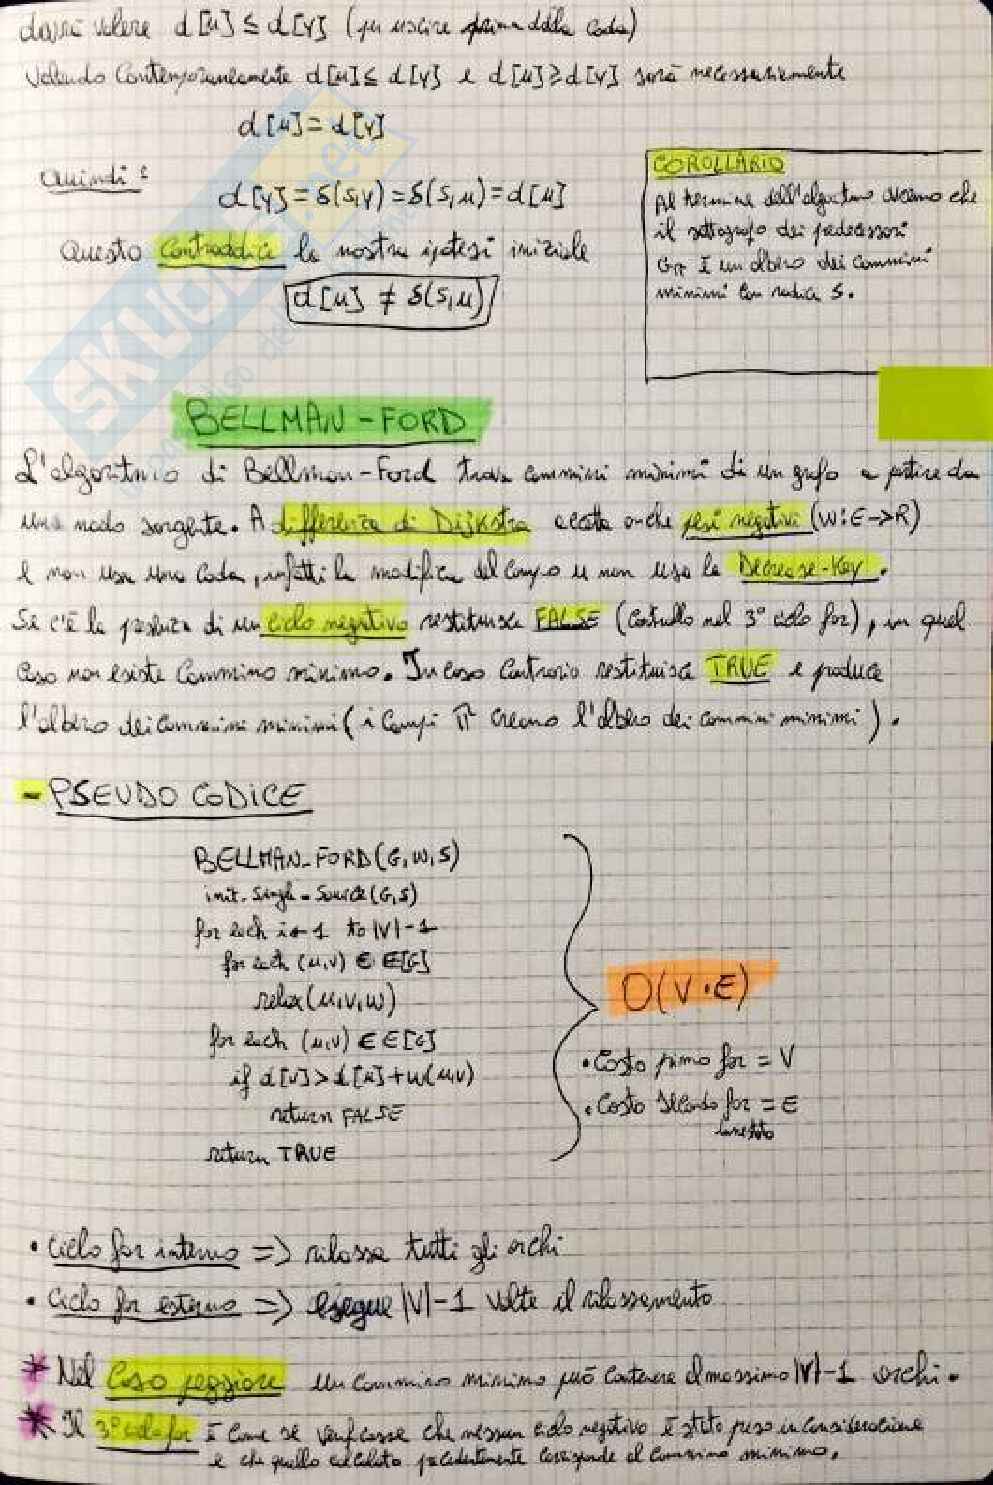 dovrà valere d[u] ≤ d[v] (per uscire prima dalla coda)
Valendo Contemporaneamente d[u] ≤ d[v] e d[u] ≥ d[v] sarà necessariamente
d[u] = d[v]
Quindi:
d[v] = δ(s,v) = δ(s,u) = d[u]
Questo Contraddice la nostra ipotesi iniziale
d[u] ≠ δ(s,u)
COROLLARIO
Al termine dell'algoritmo avremo che
il sottografo dei predecessori
Gπ è un albero dei cammini
minimi con radice s.
BELLMAN-FORD
L'algoritmo di Bellman-Ford trova cammini minimi di un grafo a partire da
uno nodo sorgente. A differenza di Dijkstra accetta anche pesi negativi (W:E->R)
e non usa una coda, infatti la modifica del campo u non usa la Decrease-Key.
Se c'è la presenza di un ciclo negativo restituisce FALSE (controllo nel 3° ciclo for), in quel
caso non esiste Cammino minimo. In caso Contrario restituisce TRUE e produce
l'albero dei cammini minimi (i campi π creano l'albero dei cammini minimi).
- PSEUDO CODICE
BELLMAN-FORD(G,W,S)
init-single-source(G,S)
for each i←1 to |V|-1
for each (u,v) ∈ E[G]
relax(u,v,w)
for each (u,v) ∈ E[G]
if d[v] > d[u] + w(u,v)
return FALSE
return TRUE
O(V·E)
• Costo primo for = V
• Costo secondo for = E
innestato
• Ciclo for interno => rilassa tutti gli archi
• Ciclo for esterno => esegue |V|-1 volte il rilassamento
* Nel Caso peggiore un cammino minimo può contenere al massimo |V|-1 archi.
* Il 3° ciclo for è come se verificasse che nessun ciclo negativo è stato preso in considerazione
e che quello calcolato precedentemente corrisponde al cammino minimo.